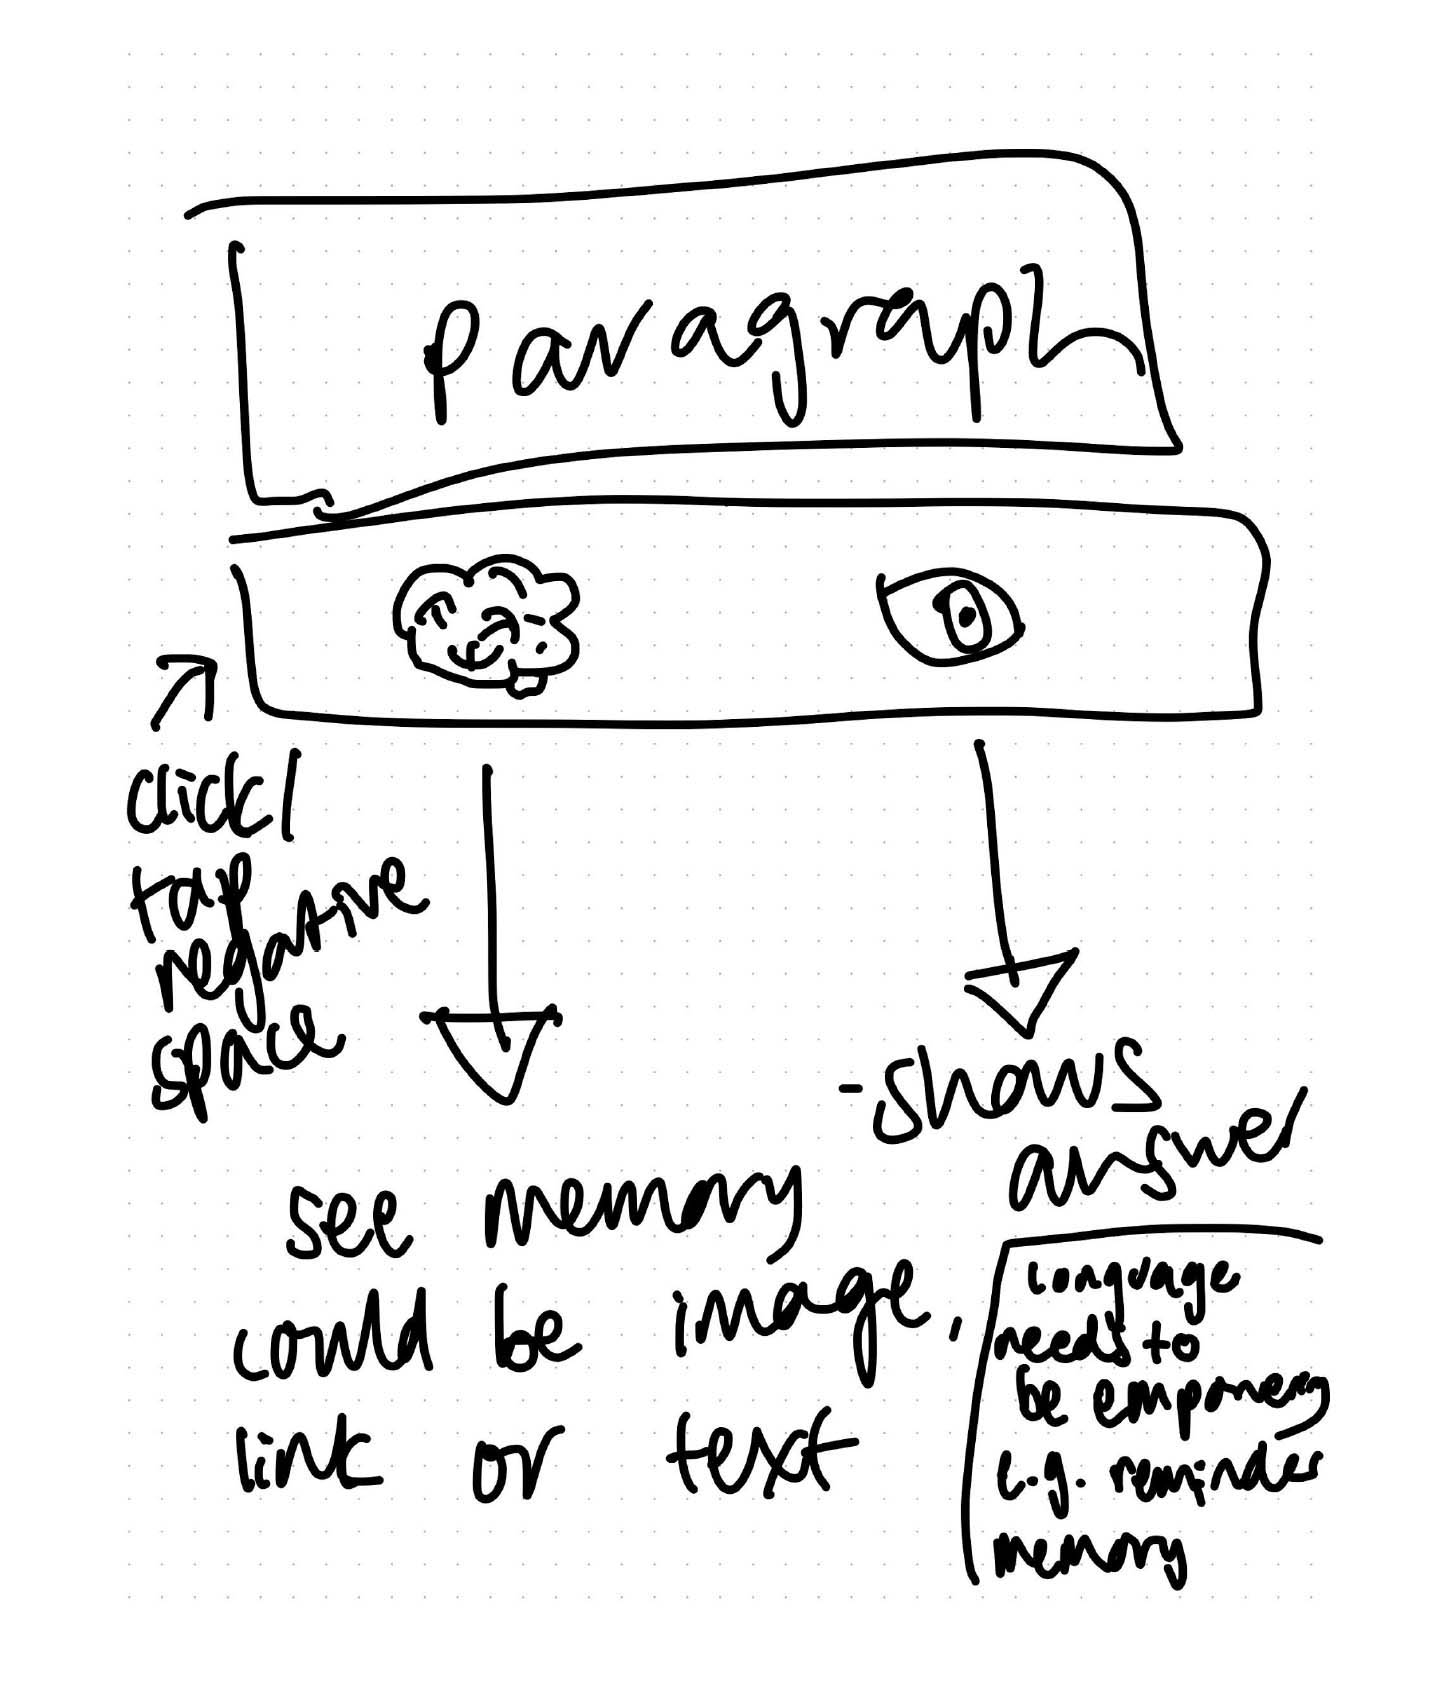 Paragraph
click/
tap
negative
space
see memory
could be image,
link or text
- shows
answer
Language
needs to
be empowering
e.g. reminder
memory